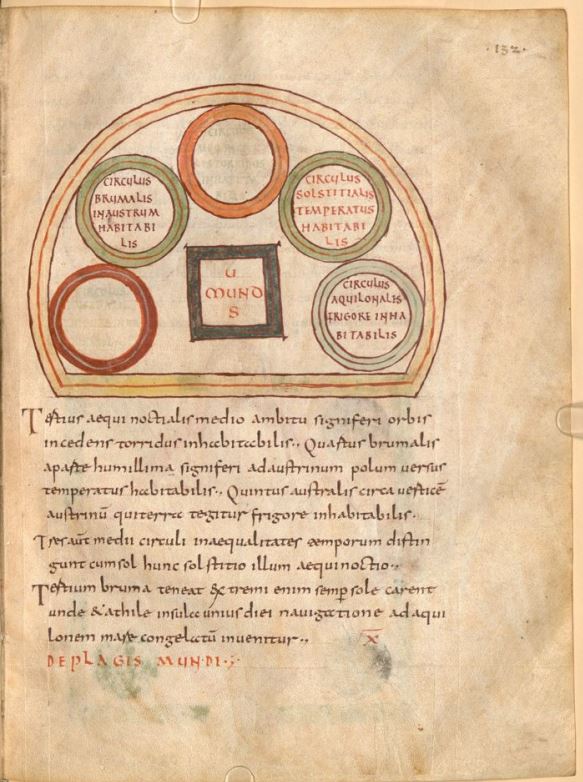 ·132·
CIRCULUS
BRUMALIS
INAUSTRUM
HABITABI
LIS
CIRCULUS
SOLSTITIALIS
TEMPERATUS
HABITABI
LIS
U
MUND
S
CIRCULUS
AQUILONALIS
FRIGORE INHA
BITABILIS
Tertius aequi noctialis medio ambitu signiferi orbis
incedens torridus inhabitabilis·, Quartus brumalis
aparte humillima signiferi adaustrinum polum versus
temperatus habitabilis·, Quintus australis circa verticē
austrinū quiterra tegitur frigore inhabitabilis·
Tres aūt medii circuli inaequalitates temporum distin
gunt cumsol hunc solstitio illum aequinoctio·,
Tertium bruma teneat Extremi enim semp̄ sole carent
unde &athile insula uniusdiei navigatione ad aqui
lonem mare congelatū invenitur·, X̄
DEPLAGIS MUNDI·;